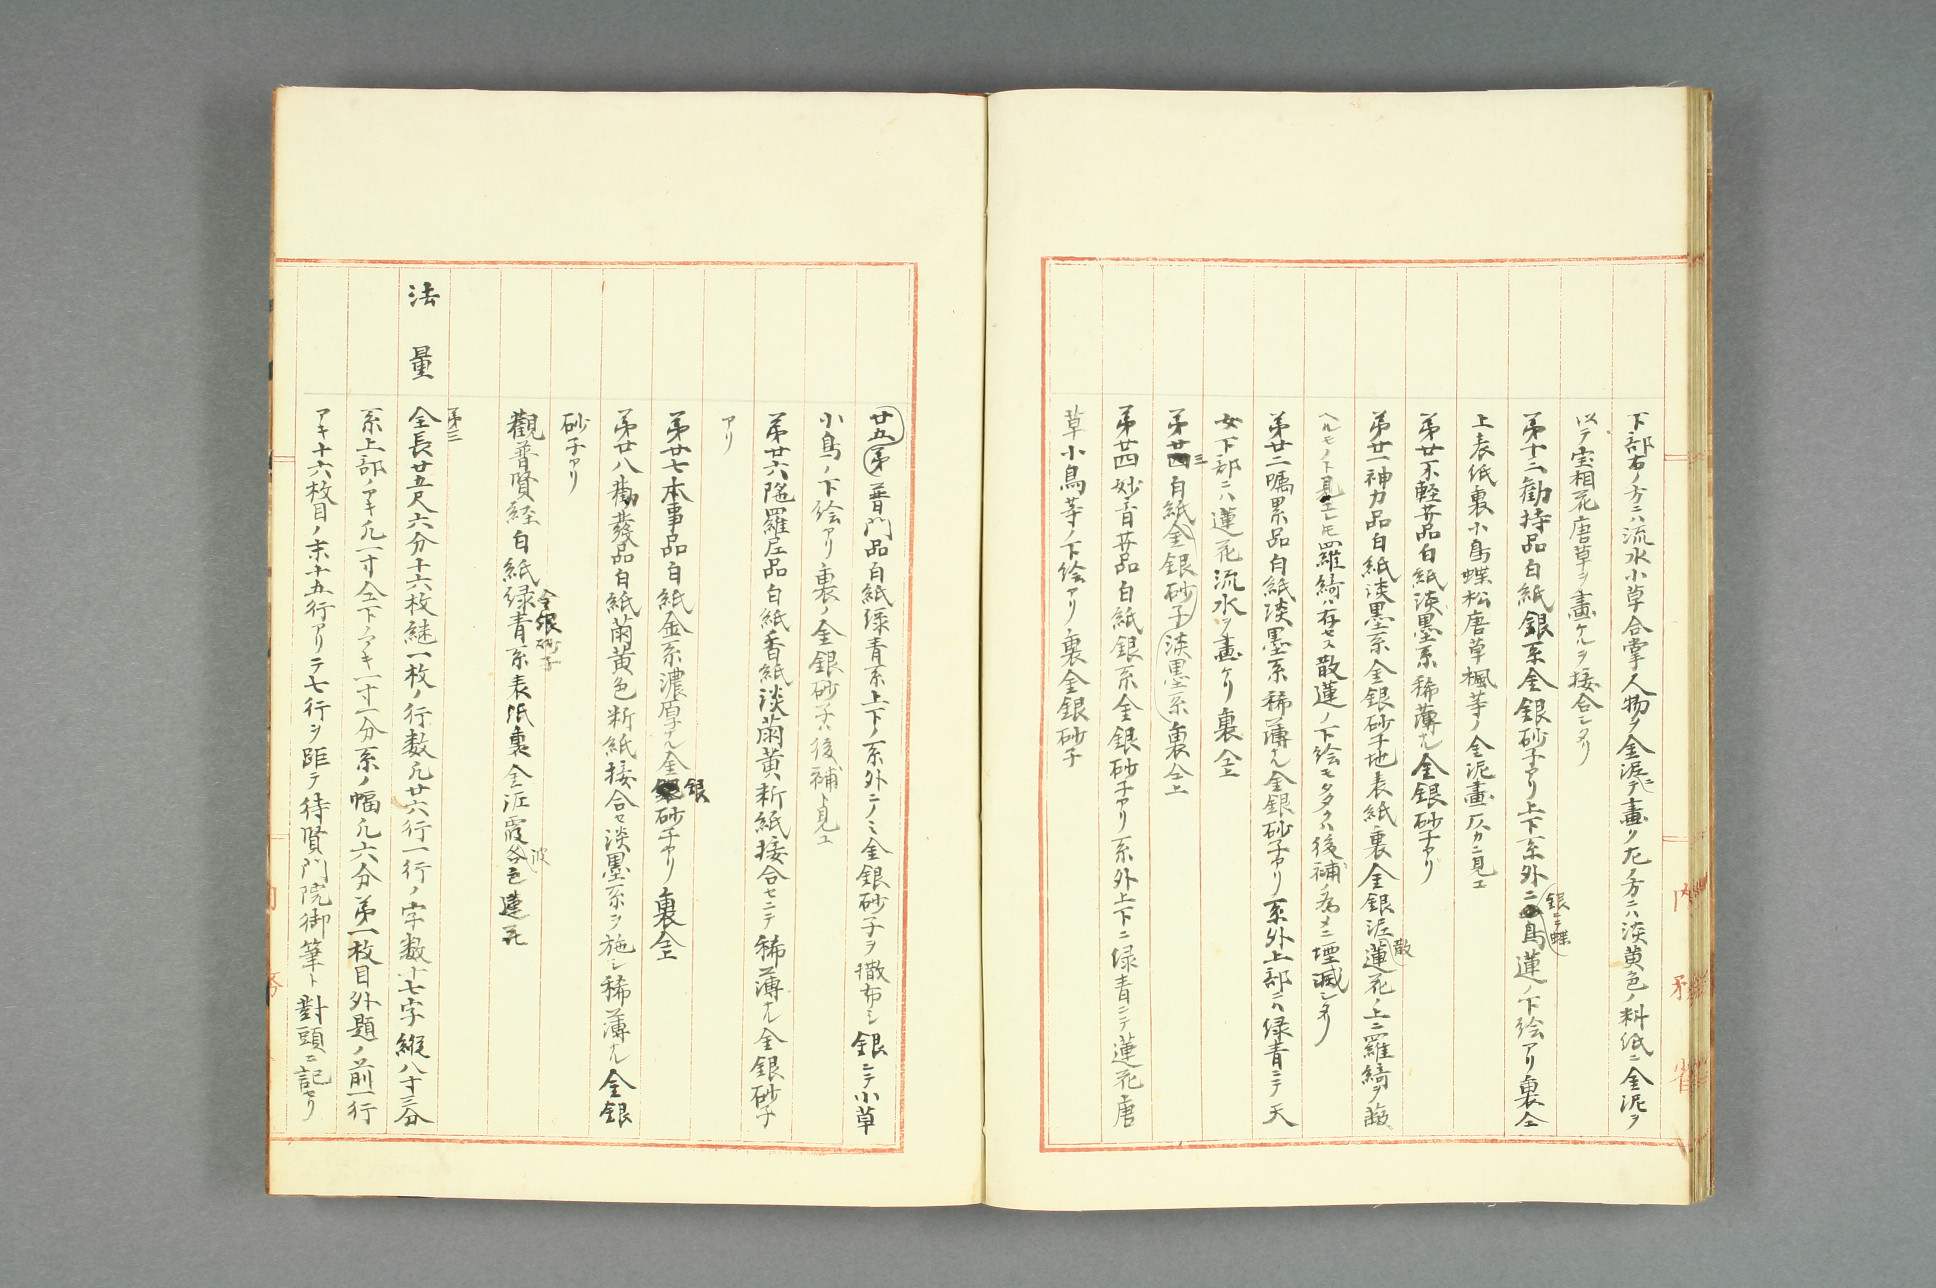 下部右ノ方ニハ流水小草合掌人物ヲ金泥ニテ畫ク左ノ方ニハ淡黄色ノ料紙ニ金泥ヲ
以テ宝相花唐草ヲ畫ケルヲ接合シタリ
第十三勧持品白紙銀系金銀砂子アリ上下系外ニ銀ニテ蝶鳥蓮ノ下絵アリ裏仝
上表紙裏小鳥蝶松唐草楓等ノ金泥畫仄カニ見エ
第廿不軽菩品白紙淡墨系稀薄ナル金銀砂子アリ
第廿一神力品白紙淡墨系金銀砂子地表紙裏金銀泥散蓮花ノ上ニ羅綺ヲ蔽
ヘルモノト見エレトモ羅綺ハ存セス散蓮ノ下絵モ多クハ後補ノ為メニ堙滅シタリ
第廿二嘱累品白紙淡墨系稀薄ナル金銀砂子アリ系外上部ニハ緑青ニテ天
女下部ニハ蓮花流水ヲ畫ケリ裏仝上
第廿三白紙金銀砂子淡墨系裏仝上
第廿四妙音菩品白紙銀系金銀砂子アリ系外上下ニ緑青ニテ蓮花唐
草小鳥等ノ下絵アリ裏金銀砂子
廿五第普門品白紙緑青系上下ノ系外ニノミ金銀砂子ヲ撒布シ銀ニテ小草
小鳥ノ下絵アリ裏ノ金銀砂子ハ後補ト見エ
第廿六陁羅尼品白紙香紙淡萠黄ノ断紙接合セニテ稀薄ナル金銀砂子
アリ
第廿七本事品白紙金系濃厚ナル金銀砂子アリ裏仝上
第廿八勧發品白紙萠黄色断紙接合セ淡墨系ヲ施シ稀薄ナル金銀
砂子アリ
觀普賢経白紙緑青系金銀砂子表紙裏金泥霞各色蓮花
法量
第三
全長廿五尺六分十六枚継一枚ノ行数凡廿六行一行ノ字数十七字縦八寸三分
系上部ノアキ凡一寸仝下ノアキ一寸一分系ノ幅凡六分第一枚目外題ノ前一行
アキ十六枚目ノ末十五行アリテ七行ヲ距テ待賢門院御筆ト對頭ニ記セリ
内
省